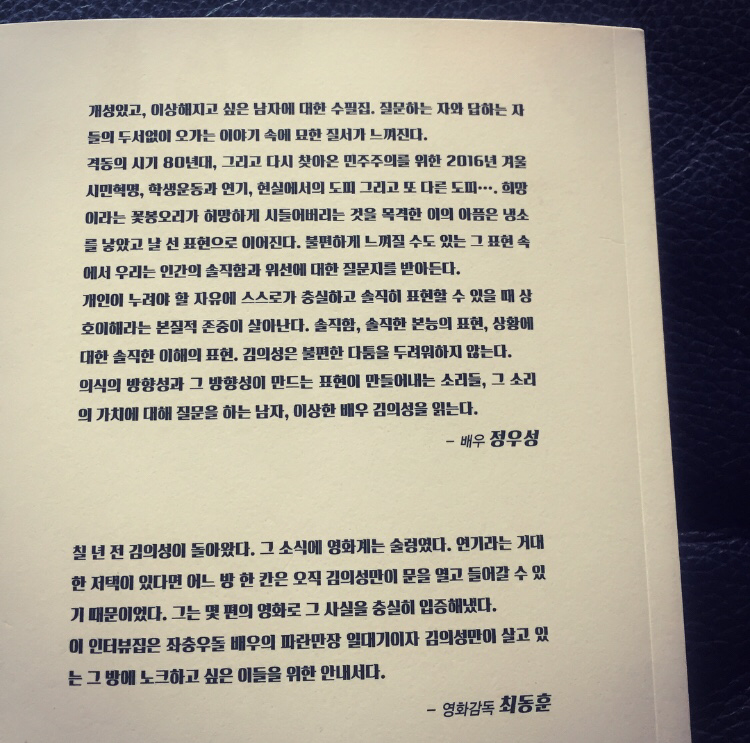 개성있고, 이상해지고 싶은 남자에 대한 수필집. 질문하는 자와 답하는 자
들의 두서없이 오가는 이야기 속에 묘한 질서가 느껴진다.
격동의 시기 80년대, 그리고 다시 찾아온 민주주의를 위한 2016년 겨울
시민혁명, 학생운동과 연기, 현실에서의 도피 그리고 또 다른 도피…. 희망
이라는 꽃봉오리가 허망하게 시들어버리는 것을 목격한 이의 아픔은 냉소
를 낳았고 날 선 표현으로 이어진다. 불편하게 느껴질 수도 있는 그 표현 속
에서 우리는 인간의 솔직함과 위선에 대한 질문지를 받아든다.
개인이 누려야 할 자유에 스스로가 충실하고 솔직히 표현할 수 있을 때 상
호이해라는 본질적 존중이 살아난다. 솔직함, 솔직한 본능의 표현, 상황에
대한 솔직한 이해의 표현. 김의성은 불편한 다툼을 두려워하지 않는다.
의식의 방향성과 그 방향성이 만드는 표현이 만들어내는 소리들, 그 소리
의 가치에 대해 질문을 하는 남자, 이상한 배우 김의성을 읽는다.
– 배우 정우성
칠 년 전 김의성이 돌아왔다. 그 소식에 영화계는 술렁였다. 연기라는 거대
한 저택이 있다면 어느 방 한 칸은 오직 김의성만이 문을 열고 들어갈 수 있
기 때문이었다. 그는 몇 편의 영화로 그 사실을 충실히 입증해냈다.
이 인터뷰집은 좌충우돌 배우의 파란만장 일대기이자 김의성만이 살고 있
는 그 방에 노크하고 싶은 이들을 위한 안내서다.
– 영화감독 최동훈